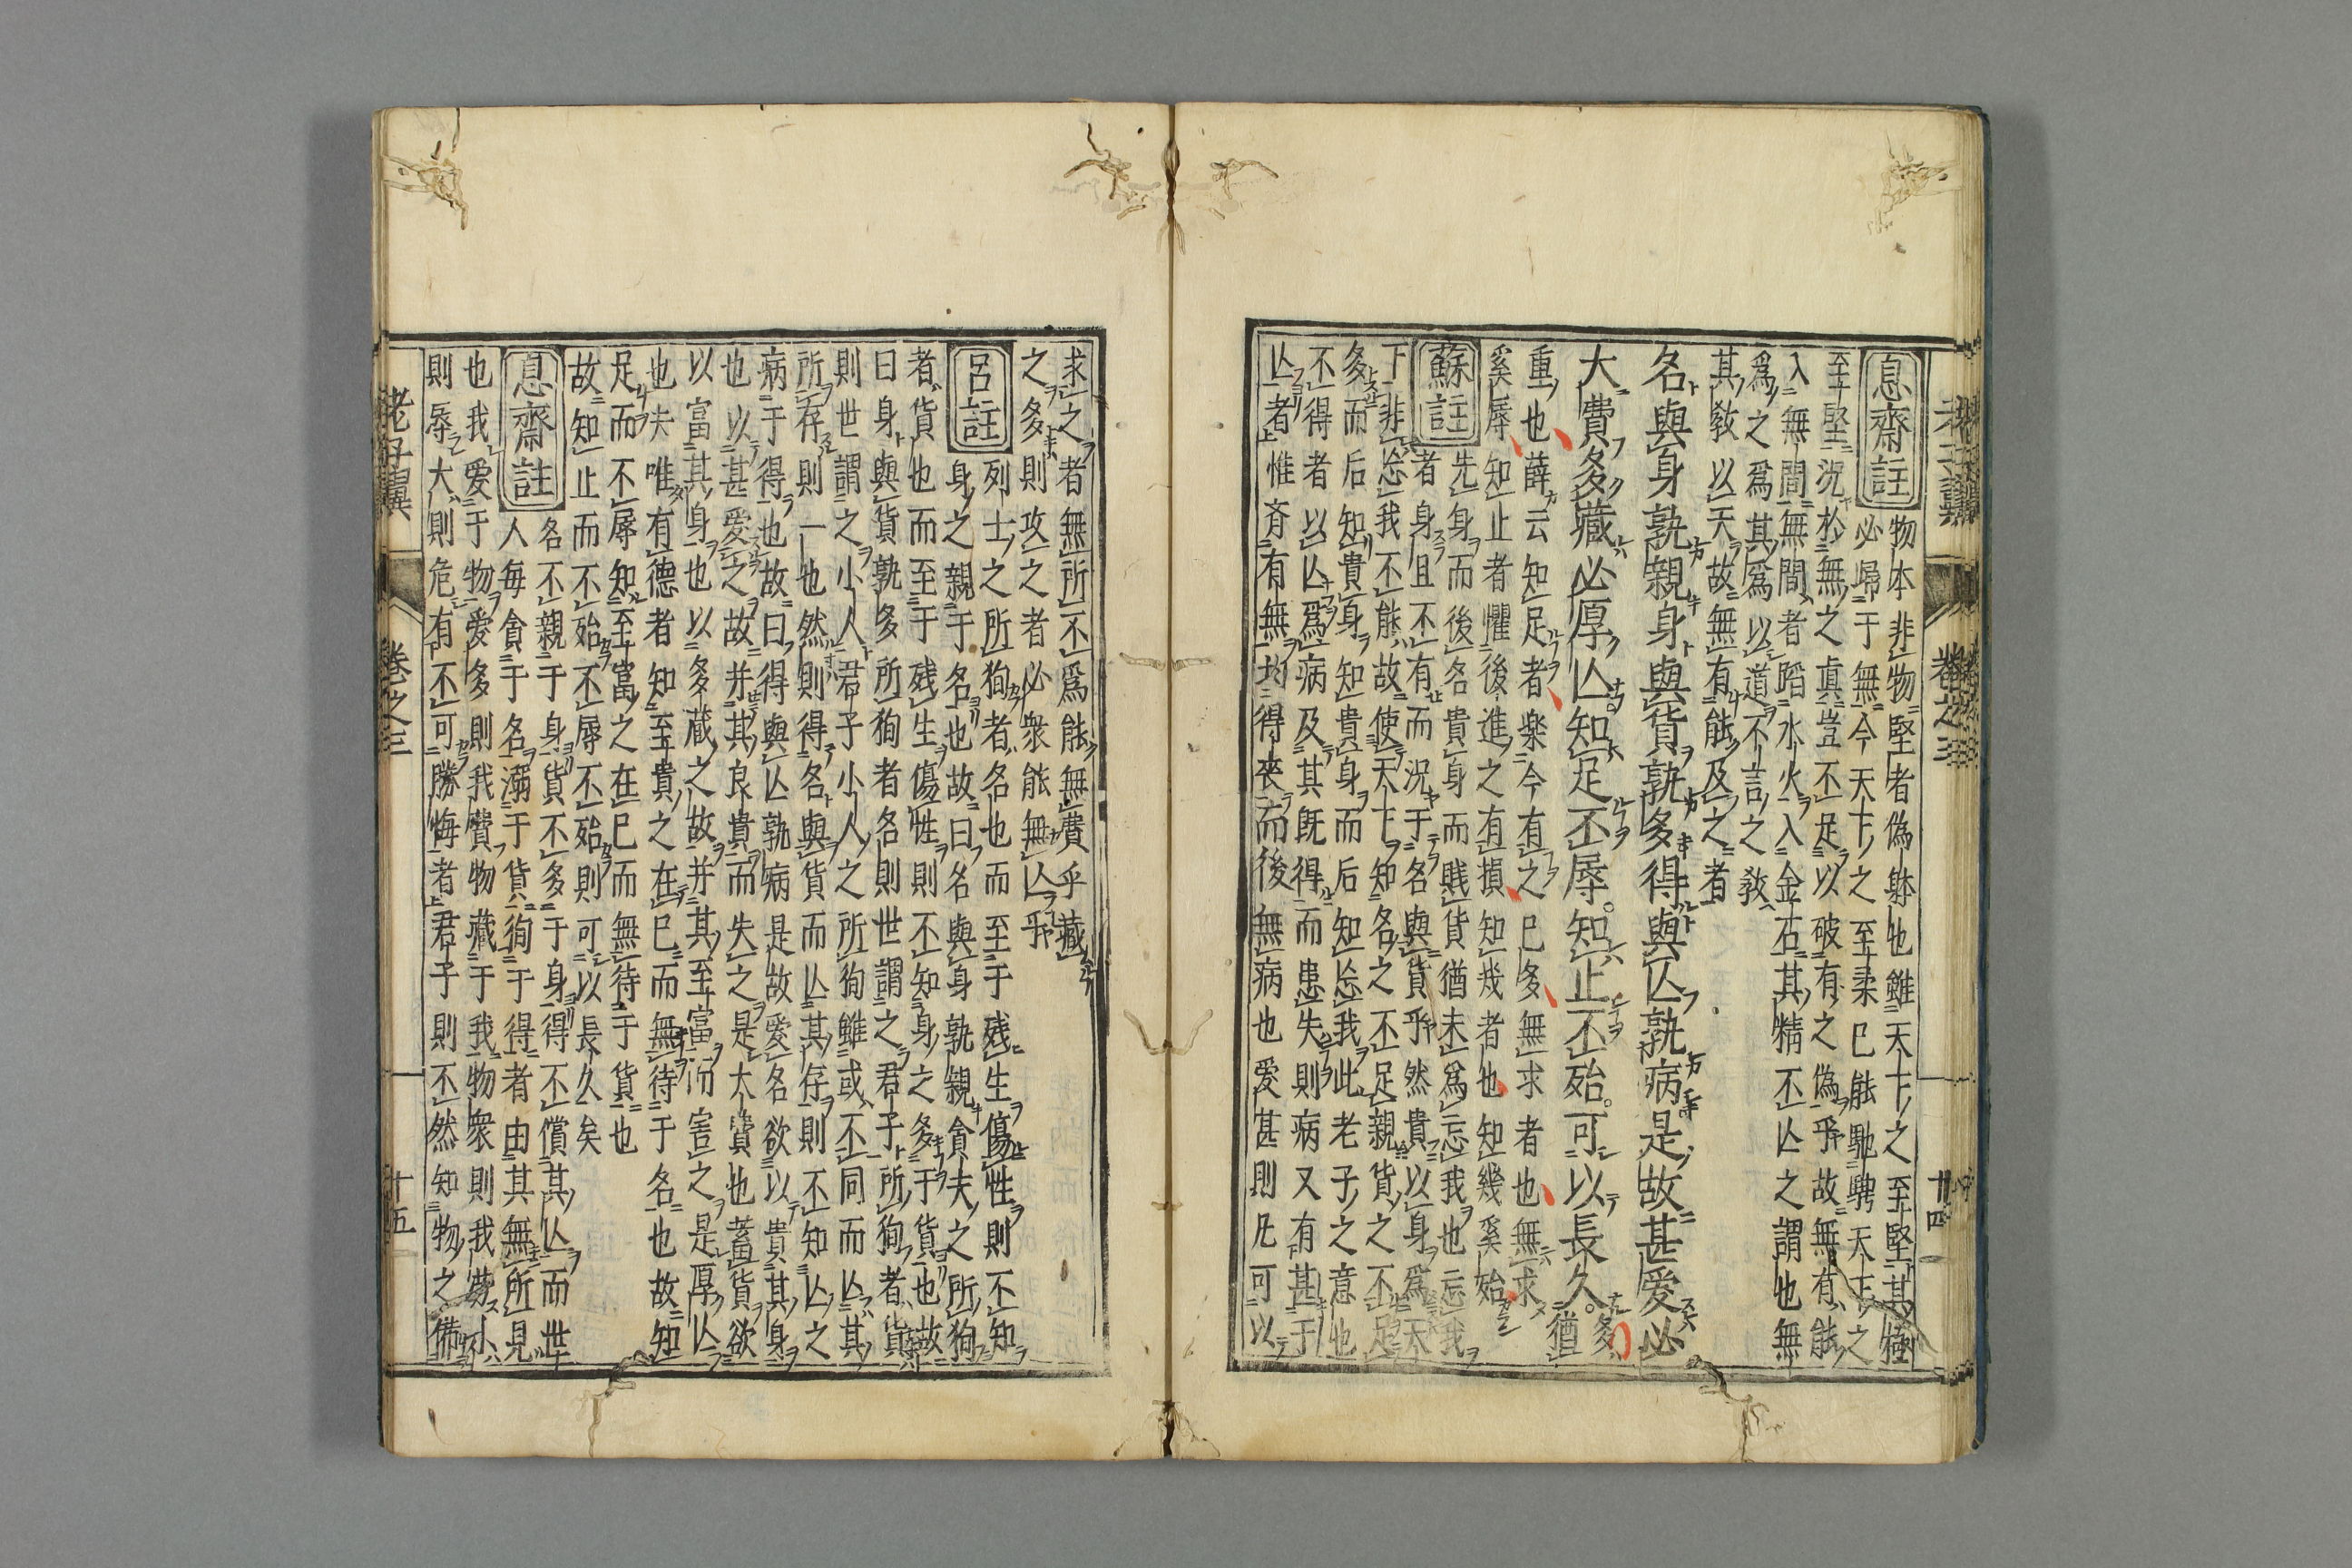 息齋註
物本非物堅者偽躰也雖天下之至堅其極
必歸于無今天下之至柔已能馳騁天下之
至堅況於無之真豈不足以破有之偽乎故無有能
入無間無間者蹈水火入金石其精不亾之謂也無
爲之爲其爲以道不言之敎
其敎以天故無有能及之者
名與身孰親身與貨孰多得與亾孰病是故甚愛必
大費多藏必厚亾知足不辱知止不殆可以長久
多猶
重也薛云知足者樂今有之已多無求者也無求
奚辱知止者懼後進之有損知幾者也知幾奚殆
蘇註
先身而後名貴身而賤貨猶未爲忘我也忘我
者身且不有而況于名與貨乎然貴以身爲天
下非忘我不能故使天下知名之不足親貨之不足
多而后知貴身知貴身而后知忘我此老子之意也
不得者以亾爲病及其既得而患失則病又有甚于
亾者惟齊有無均得喪而後無病也愛甚則凡可以
卷之三
廿四
求之者無所不爲能無費乎藏
之多則攻之者必衆能無亾乎
呂註
列士之所狥者名也而至于殘生傷性則不知
身之親于名也故曰名與身孰親貪夫之所狥
者貨也而至于殘生傷性則不知身之多于貨也故
曰身與貨孰多所狥者名則世謂之君子所狥者貨
則世謂之小人君子小人之所狥雖或不同而亾其
所存則一也然則得名與貨而亾其存則不知亾之
病于得也故曰得與亾孰病是故愛名欲以貴其身
也以甚愛之故并其良貴而失之是大費也蓄貨欲
以富其身也以多藏之故并其至富而害之是厚亾
也夫唯有德者知至貴之在己而無待于名也故知
足而不辱知至富之在已而無待于貨也
故知止而不殆不辱不殆則可以長久矣
息齋註
名不親于身貨不多于身得不償其亾而世
人每貪于名溺于貨狥于得者由其無所見
也我愛于物愛多則我費物藏于我物衆則我勞小
則辱大則危有不可勝悔者君子則不然知物之備
老子翼
卷之三
十五